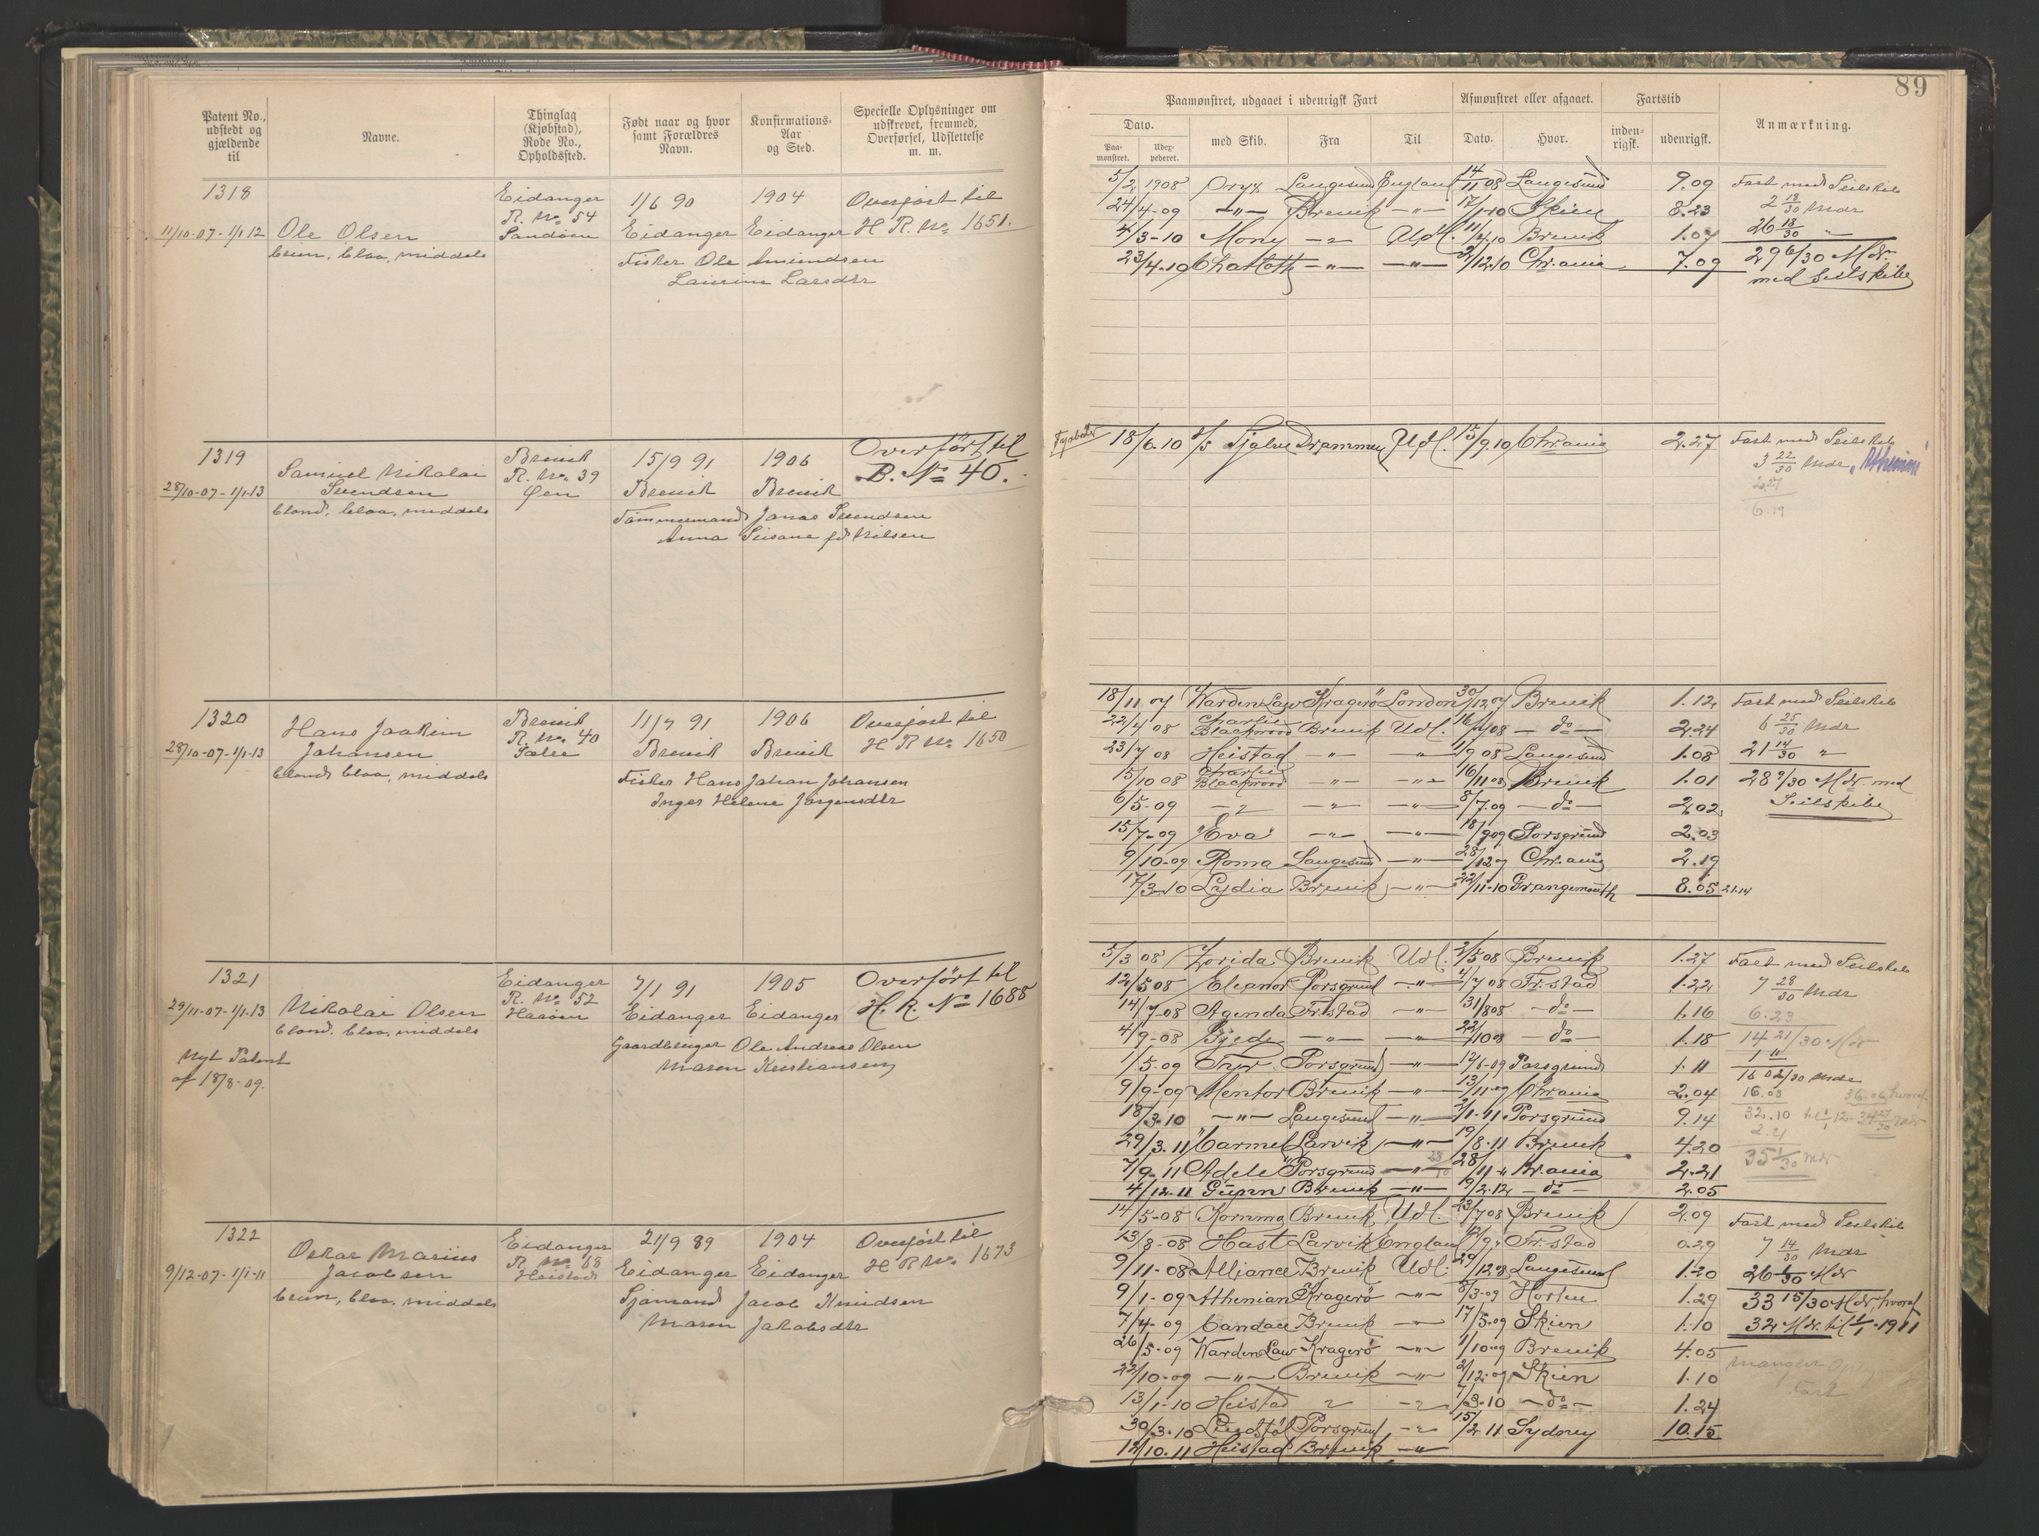 89
Patent No., udstedt og gjældende til
Navne.
Thinglag (Kjøbstad), Rode No., Opholdssted.
Født naar og hvor samt Forældres Navn.
Konfirmations-Aar og Sted.
Specielle Oplysninger om udskrevet, fremmed, Overførsel, Udslettelse m. m.
Paamønstret, udgaaet i udenrigsk Fart
Afmønstret eller afgaaet.
Fartstid
Anmærkning.
Dato.
Paa-mønstret.
Udex-pederet.
med Skib.
Fra
Til
Dato.
Hvor.
inden-rigsk.
udenrigsk.
1318
Eidanger
1/6 90
1904
Overført til
11/10-07-1/1 12
Ole Olsen
R. No. 54
Sandøen
Eidanger
Eidanger
H R. No. 1651.
brun, blaa, middels
Fisker Ole Amundsen
Laurine Larsdtr
1319
Samuel Nikolai
Brevik
15/9 91
1906
Overført til
28/10-07-1/1-13
Svendsen
R. No. 39
Øen
Brevik
Brevik
B. No 40.
blond, blaa, middels
Tømmermand Jonas Svendsen
Anna Susane fd Nilsen
1320
Hans Joakim
Brevik
11/7 91
1906
Overført til
28/10-07-1/1-13
Johansen
R. No. 40
Brevik
Brevik
H R No 1650
blond, blaa, middels
Fisker Hans Johan Johansen
Inger Helene Jørgensdtr
1321
Eidanger
7/1 91
1905
Overført til
29/11-07-1/1-13
Nikolai Olsen
R. No. 52
Haaøen
Eidanger
Eidanger
H. R. No 1688
blond, blaa, middels
Gaardbruger Ole Andreas Olsen
Nyt Patent
Maren Kristiansen
af 18/8-09.
1322
Oskar Marius
Eidanger
21/9 89
1904
Overført til
9/12-07-1/1-11
Jacobsen
R. No 68
Heistad
Eidanger
Eidanger
H R No. 1673
brun, blaa, middels
Sjømand Jacob Knudsen
Maren Jakobsdtr
5/2 1908 Oryx Langesund England 14/11 08 Langesund 9.09 Fart med Seilskib
24/4-09 -"- Brevik -"- 17/1-10 Skien 8.23 2 18/30 Mdr
4/3-10 Mony -"- Udl. 11/4 10 Brevik 1.07 26 18/30 "
23/4-10 Charlotte -"- -"- 2/12.10 Chr.ania 7.09 29 6/30 Mdr.
med Seilskibe
Fyrbøder 18/6.10 S/S Tjalve Drammen Udl. 15/9.10 Chr.ania 2.27 Fart med Seilskib
3 22/30 Mdr "Athenian"
2.27
6.19
18/11 07 Warden Law Kragerø London 30/12 07 Brevik 1.12 Fart med Seilskib
22/4 08 Charlie Blackwood Brevik Udl. 16/7 08 - do - 2.24 6 25/30 Mdr
23/7 08 Heistad " " 1/9 08 Langesund 1.08 21 14/30 "
15/10 08 Charlie Blackwood " -"- 16/11 08 Brevik 1.01 28 9/30 Mdr. med
6/5-09 -"- -"- -"- 8/7.09 - do - 2.02 Seilskibe
15/7-09 "Eva" -"- -"- 18/9 09 Porsgrund 2.03
9/10-09 Roma Langesund -"- 28/12.09 Chr.ania 2.19
17/3-10 Lydia Brevik -"- 22/11-10 Grangemouth 8.05 21.14
5/3 08 Zorida Brevik Udl. 2/5 08 Brevik 1.27 Fart med Seilskib
12/5 08 Eleanor Porsgrund -"- 4/7 08 Fr.stad 1.22 7 28/30 Mdr
14/7-08 Agenda Fr.stad -"- 31/8 08 - do - 1.16 6.23
4/9-08 -"- -"- 22/10 08 - do - 1.18 14 21/30 Mdr
1/5-09 Fyr Porsgrund -"- 12/6-09 Porsgrund 1.11 1 11
9/9-09 Mentor Brevik -"- 13/11-09 Chr.ania 2.04 16 02/30 Mdr
18/3.10 -"- Langesund -"- 2/1-11 Porsgrund 9.14 16.08
29/3.11 "Carmel" Larvik -"- 19/8.11 Brevik 4.20 32.10
7/9-11 Adele Porsgrund -"- 28/11 11 Kr.ania 2.21 2.21
4/12.11 Brevik -"- 9/2.12 - do - 2.05 35 1/30 Mdr
14/5-08 Komma Brevik Udl. 23/7 08 Brevik 2.09 Fart med Seilskib
13/8-08 Hast Larvik England Fr.stad 0.29 7 14/30 Mdr
9/11-08 Alliance Brevik Udl. 29/12.08 Langesund 1.20 26 1/30 Mdr
9/1-09 Athenian Kragerø -"- 8/3-09 Horten 1.29 33 15/30 Mdr, hvoraf
7/4-09 Candace Brevik -"- 17/5-09 Skien 1.10 32 Mdr. til 1/1-1911
26/5-09 Warden Law Kragerø -"- 1/10-09 Brevik 4.05
22/10-09 -"- Brevik -"- 2/12-09 Skien 1.10 mangler
13/1-10 Heistad " -"- 7/3-10 - do - 1.24 Fart
30/3.10 Lindstøl Porsgrund -"- 15/2.11 Sydney 10.15
12/10.11 Heistad Brevik -"-